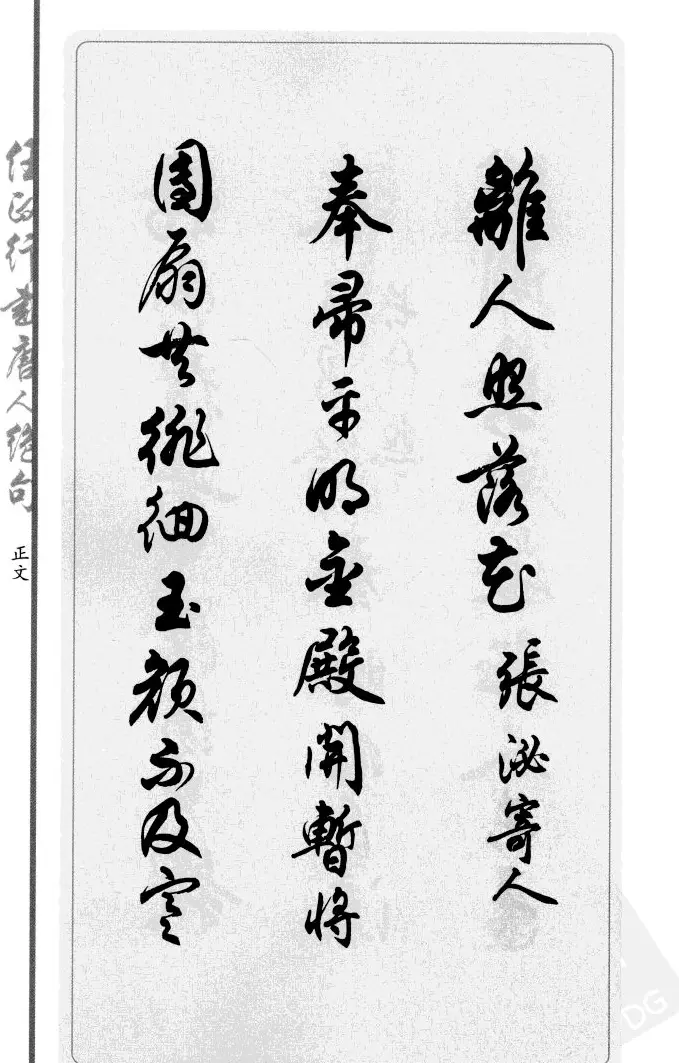 離人照落花 張泌寄人
奉帚平明金殿開暫將
團扇共徘徊玉顏不及寒
任政行書唐人绝句
正文
DG